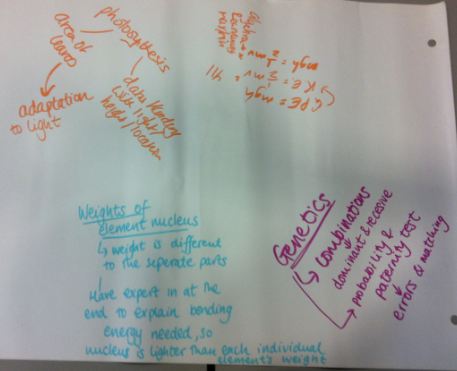 photosynthesis
area of
leaves
adaptation
to light
with light/
height/location
GPE = mgh
Weights of
element nucleus
↳ weight is different
to the seperate parts
Have expert in at the
end to explain bonding
energy needed, so
nucleus is lighter than each individual
element's weight
Genetics
↳ combinations
dominant & recessive
↳ probability &
paternity test
↳ errors & matching